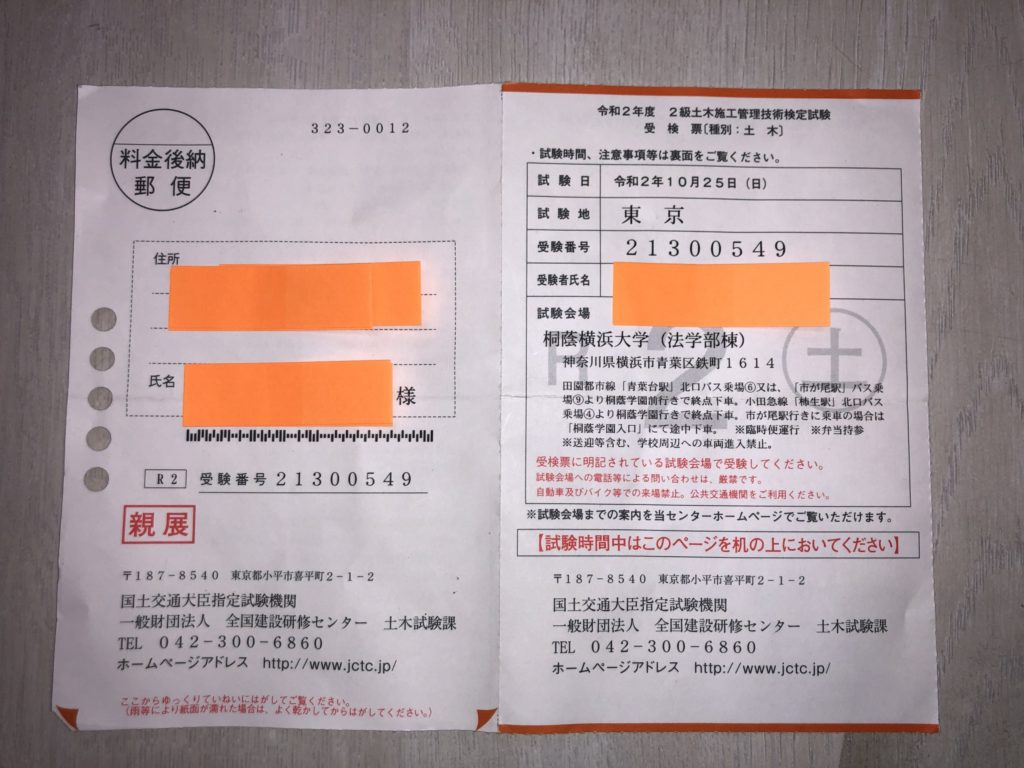 料金後納
郵便
323-0012
住所
氏名
様
R2 受験番号 21300549
親展
〒187-8540 東京都小平市喜平町2-1-2
国土交通大臣指定試験機関
一般財団法人 全国建設研修センター 土木試験課
TEL 042-300-6860
ホームページアドレス http://www.jctc.jp/
ここからゆっくりていねいにはがしてご覧ください。
(雨等により紙面が濡れた場合は、よく乾かしてからはがしてください。)
令和2年度 2級土木施工管理技術検定試験
受検票〔種別:土 木〕
・試験時間、注意事項等は裏面をご覧ください。
試験日 令和2年10月25日(日)
試験地 東 京
受験番号 21300549
受験者氏名
試験会場
桐蔭横浜大学(法学部棟)
神奈川県横浜市青葉区鉄町1614
田園都市線「青葉台駅」北口バス乗場⑥又は、「市が尾駅」バス乗
場⑨より桐蔭学園前行きで終点下車。小田急線「柿生駅」北口バス
乗場④より桐蔭学園行きで終点下車。市が尾駅行きに乗車の場合は
「桐蔭学園入口」にて途中下車。 ※臨時便運行 ※弁当持参
※送迎等含む、学校周辺への車両進入禁止。
R2
土
受検票に明記されている試験会場で受験してください。
試験会場への電話等による問い合わせは、厳禁です。
自動車及びバイク等での来場禁止。公共交通機関をご利用ください。
※試験会場までの案内を当センターホームページでご覧いただけます。
【試験時間中はこのページを机の上においてください】
〒187-8540 東京都小平市喜平町2-1-2
国土交通大臣指定試験機関
一般財団法人 全国建設研修センター 土木試験課
TEL 042-300-6860
ホームページアドレス http://www.jctc.jp/